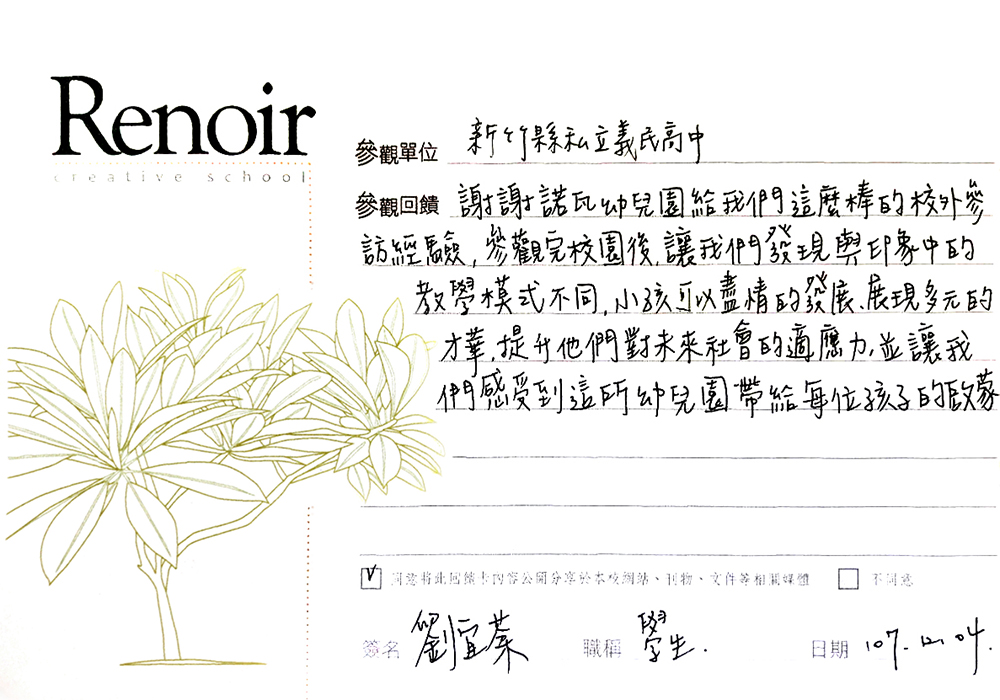 Renoir
creative school
參觀單位 新竹縣私立義民高中
參觀回饋 謝謝諾瓦幼兒園給我們這麼棒的校外參
訪經驗,參觀完校園後,讓我們發現與印象中的
教學模式不同,小孩可以盡情的發展、展現多元的
才華,提升他們對未來社會的適應力,並讓我
們感受到這所幼兒園帶給每位孩子的啟蒙
V 同意將此回饋卡內容公開分享於本校網站、刊物、文件等相關媒體 不同意
簽名 劉宜蓁 職稱 學生. 日期 107.12.04.